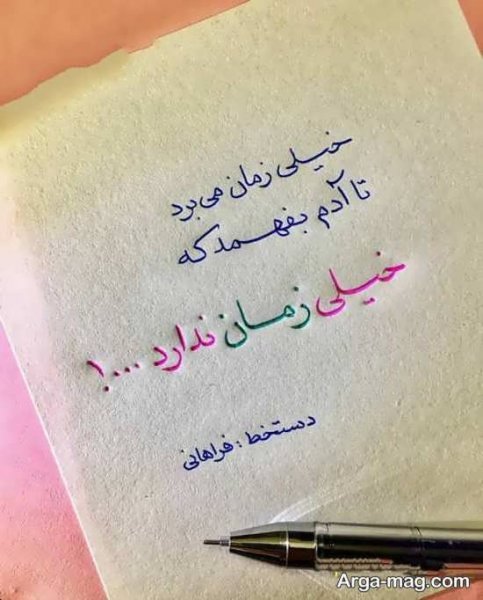 خیلی زمان می‌برد
تا آدم بفهمد که
خیلی زمان ندارد ...!
دستخط : فراهانی
Arga-mag.com